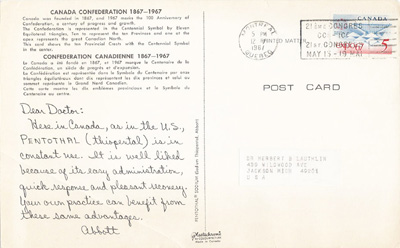 CANADA CONFEDERATION 1867-1967
Canada was founded in 1867, and 1967 marks the 100 Anniversary of
Confederation, a century of progress and growth.
The Confederation is represented in the Centennial Symbol by Eleven
Equilateral triangles, Ten to represent the ten provinces and one at the
apex represents the great Canadian North.
This card shows the ten Provincial Crests with the Centennial Symbol
in the center.
CONFEDERATION CANADIENNE 1867-1967
Le Canada a été fondé en 1867, et 1967 marque le Centenaire de la
Confédération, un siècle de progrès et d'expansion.
La Confédération est représentée dans le Symbole du Centenaire par onze
triangles équilatéraux dont dix représentent les dix provinces et celui au
sommet représente le Grand Nord Canadien.
Cette carte montre les dix emblèmes provinciaux et le Symbole du
Centenaire au centre.
Dear Doctor:
Here in Canada, as in the U.S.,
PENTOTHAL (thiopental) is in
constant use. It is well liked
because of its easy administration,
quick response and pleasant recovery.
Your own practice can benefit from
these same advantages.
Abbott
PENTOTHAL SODIUM (Sodium Thiopental, Abbott)
MONTREAL
PM
12
1967
QUEBEC
PRINTED MATTER
CANADA
5
POST CARD
DR HERBERT
JACKSON MISS
U S A